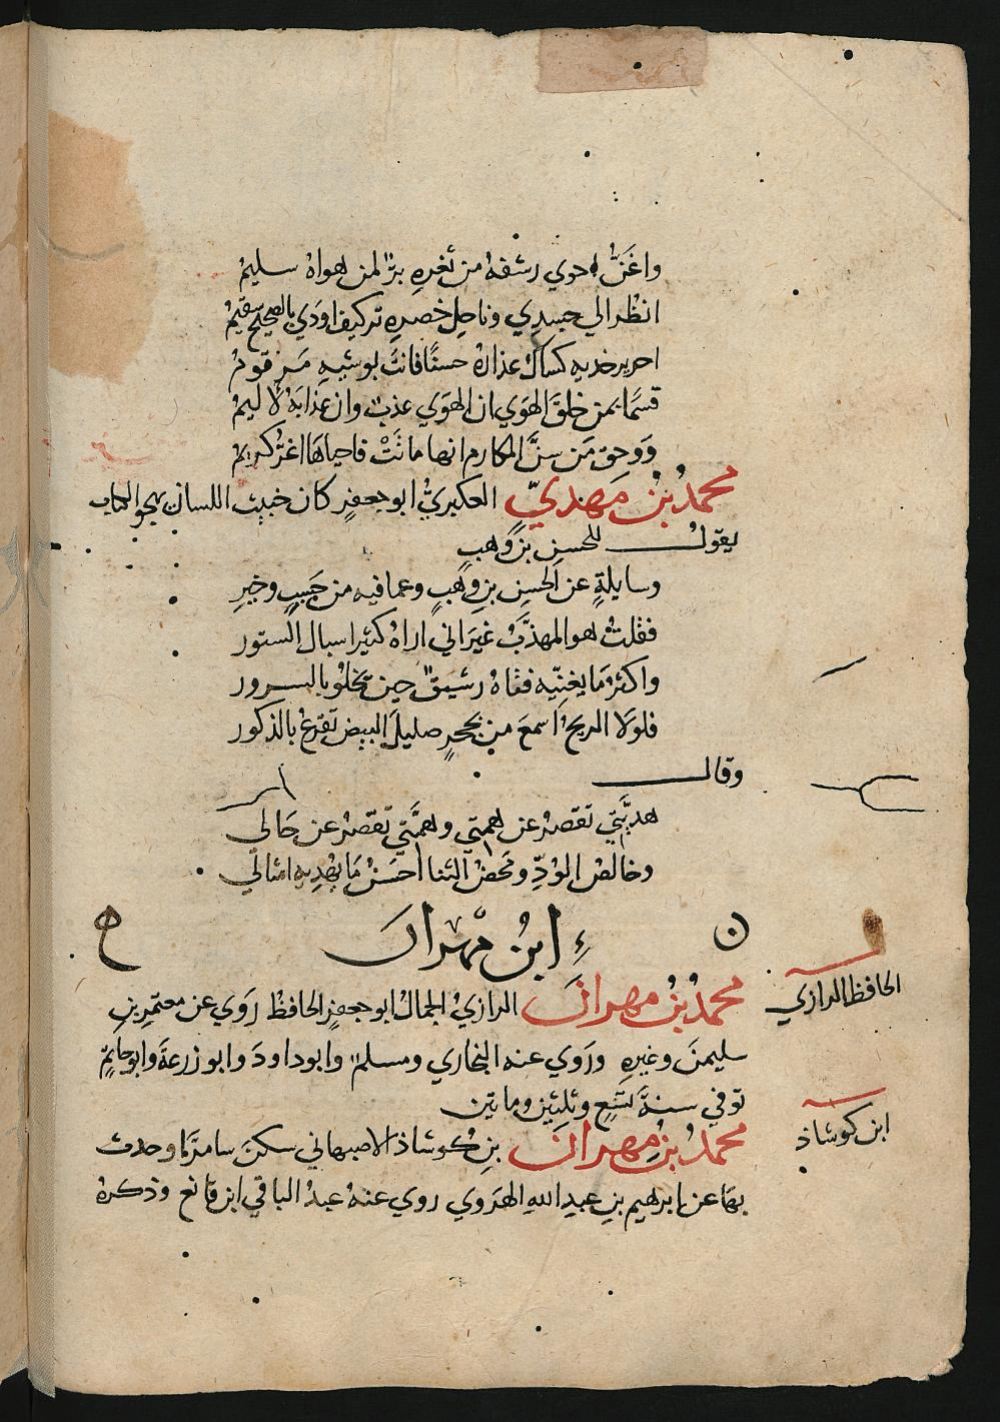 واغَنُّ احوي رشفهُ من ثغرهِ برٌّ لمن يهواهُ سليمُ
انظُر الي جسدِي وناحلِ خصرهِ تركيف اودي بالصحيح سقيمُ
احرير خديهِ كساك عذارهُ حسنًا فانتَ بوشيهِ مَرقومُ
قسمًا بمن خلقَ الهَوي ان الهَوي عذبٌ وان عذابَهُ لاليمُ
وَوحق مَن سنَّ المكارم انها ماتَتْ فاحياهَا اغرُّ كريمُ
محمدُ بنُ مَهديّ العكبريُّ ابو جعفرٍ كان خبيث اللسان يهجو الكتاب
يقولُ للحسنِ بنِ وهبٍ
وسايلةٍ عن الحسنِ بنِ وهبٍ وعما فيه من حَسبٍ وخيرِ
فقلتُ هو المهذَّبُ غيرَ اني اراهُ كثير اسبال الستور
واكثرُ مَا يغنّيه فتاهُ رشيقٌ حين يخلُو بالسرور
فلولا الريحُ اسمعَ من بحجرٍ صليلَ البيض تقرعُ بالذكور
وقال
هديَّتي تقصرُ عن همتي وهمَّتي تقصرُ عن حَالي
وخالصُ الودِّ ومحضُ الثنا احسَنُ مَا يهديه امثالي
ن ء ابنُ مْهران ح
الحافظ الرازي
محمدُ بنُ مهرانَ الرازيُ الجمالُ ابو جعفرٍ الحافظُ رَوي عن معتمرِ بنِ
سليمنَ وغيرهِ ورَوي عنه البخاري ومسلمٌ وابو داودَ وابو زرعةَ وابو حاتمٍ
توفي سنةَ تسَعٍ وثلثينَ وماتين
ابن كوشاذ
محمدُ بنُ مهرانَ بنِ كوشاذ الاصبهاني سكنَ سامرَّا وحدث
بهَا عن ابرهيم بنِ عبدِ اللهِ الهَرَوي روي عنهُ عبدُ الباقي ابن قانع وذكرهُ